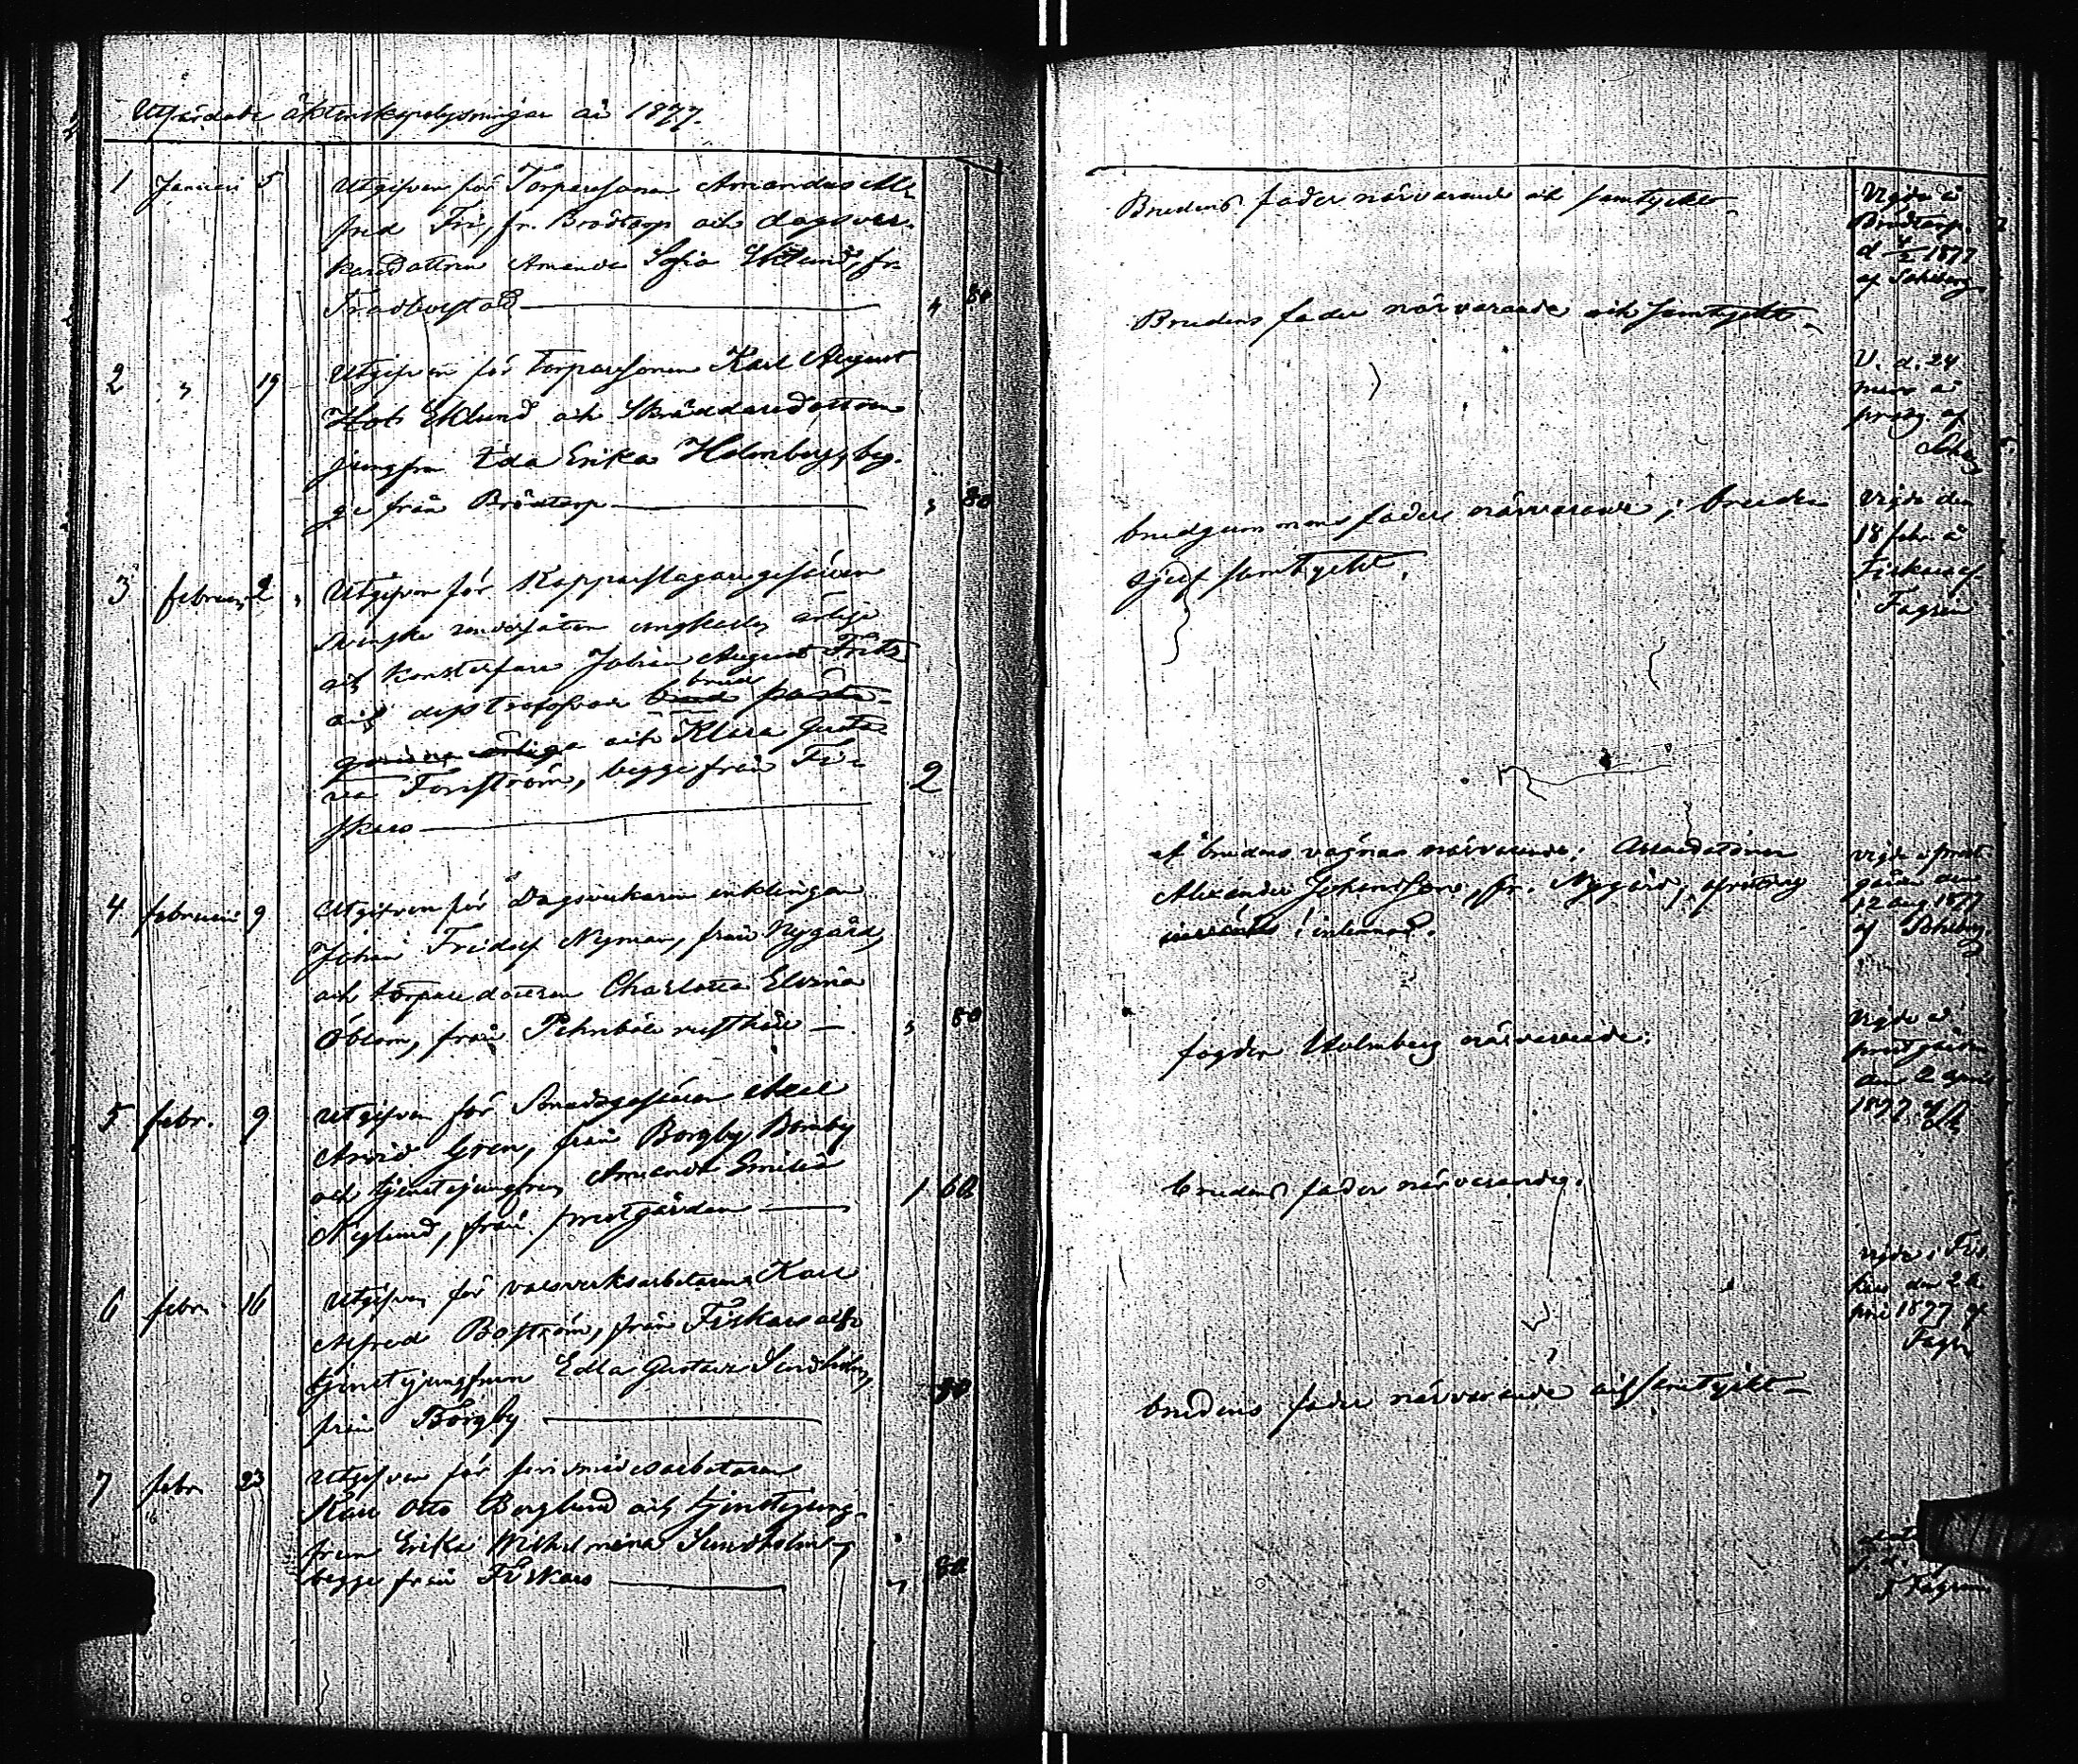 Utfärdade äktenskapslysningar år 1877.
1 Januari 5 Utgifven för Torparesonen Amandus Al-
fred Fri, fr. Brödtorp och dagsver-
karedottren Amanda Sofia Eklund, fr.
80
2 " 19 Utgifven för Torparesonen Karl August
Eklund och Skräddaredottren
jungfrun Eda Erika Holmberg, beg-
ge från Brödtorp 80
3 februari 2 Utgifven för Kopparslagaregesällen
Svenske undersåten ungkarlen ärlige
och Johan August
och brud
ärliga och Klara Gusta-
va Forsström, begge från Fi-
skars 2
4 februari 9 Utgifven för Dagsverkaren enklingen
Johan Fridolf Nyman, från Nygård,
och torparedottren Charlotta Elvina
Öblom, från 80
5 febr. 9 Utgifven för Smedsgesällen Axel
Arvid Gren, från Borgby Bonäby
och tjenstejungfrun Amanda Emilia
Nylund, från prestgården 1 60
6 febr. 16 Utgifven för valsverksarbetaren Karl
Alfred Boström, från Fiskars och
tjenstejungfrun Edla Gustava Sundholm,
från Borgby 80
7 febr 23 Utgifven för finsmidesarbetaren
Karl Otto Berglund och tjenstejung-
frun Erika Wilhelmina Sundholm,
begge från Fiskars 80
Brudens fader närvarande och samtyckte
Vigde å
Brödtorp
1877
af
Brudens fader närvarande och samtyckte
V. d. 24
mars å
prstg af
brudgummens fader närvarande; bruden
sjelf samtyckt.
Vigde den
18 febr. å
Fiskars af
Fagrén
å brudens vägnar närvarande;
Alexander Johansson, fr. Nygård,
inlemnad.
vigde å prest-
gården den
12 aug 1877
af
fogden Holmberg närvarande.
Vigde å
prestgården
den 2 april
1877 af
brudens fader närvarande.
vigde i Fis-
kars den 2 a-
pril 1877 af
Fagrén
brudens fader närvarande och samtyckt
Fagrén